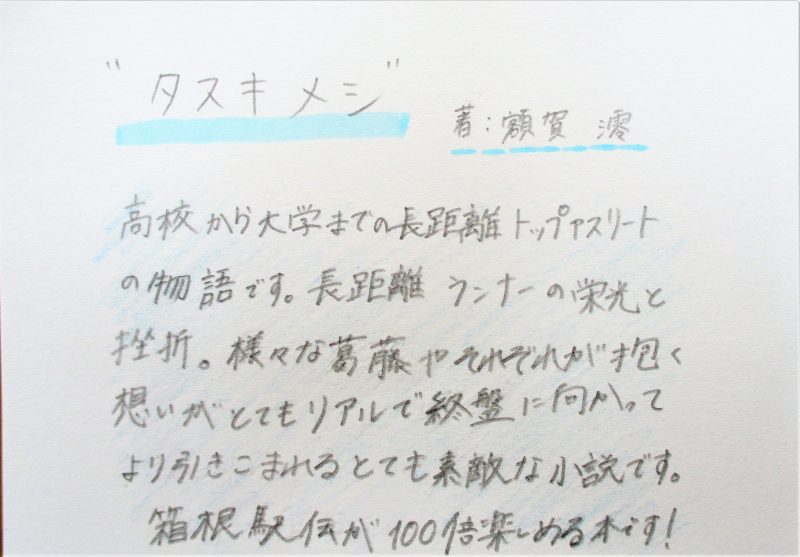 "タスキメシ"
著:額賀 澪
高校から大学までの長距離トップアスリート
の物語です。長距離ランナーの栄光と
挫折。様々な葛藤やそれぞれが抱く
想いがとてもリアルで終盤に向かって
より引きこまれるとても素敵な小説です。
箱根駅伝が100倍楽しめる本です!